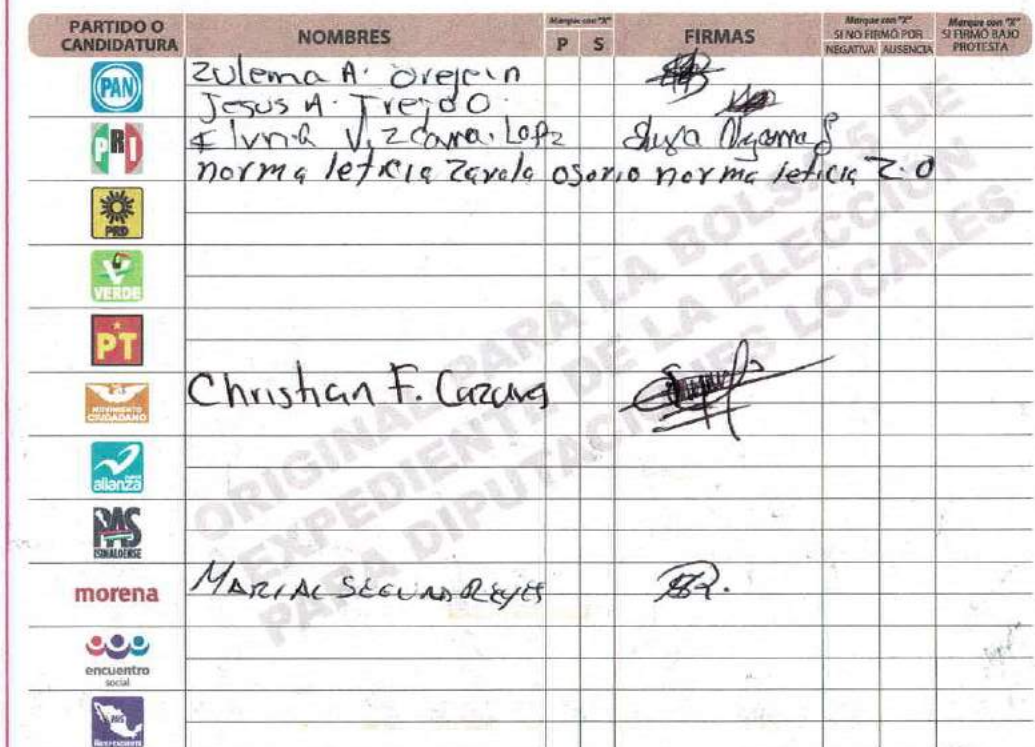 PARTIDO O CANDIDATURA NOMBRES Marque con "X" P S FIRMAS Marque con "X" SI NO FIRMÓ POR NEGATIVA AUSENCIA Marque con "X" SI FIRMÓ BAJO PROTESTA
PAN Zulema A.
Jesus A. Trejo O.
PRI Elvira Vizcarra Lopz
norma leticia Zavala osorio norma leticia Z.O
PRD
VERDE
PT
MOVIMIENTO CIUDADANO Christian F.
alianza
PAS SINALOENSE
morena MARIAL REYES
encuentro social
INDEPENDIENTE
ORIGINAL PARA LA BOLSA 5 DE
EXPEDIENTE DE LA ELECCIÓN
PARA DIPUTACIONES LOCALES